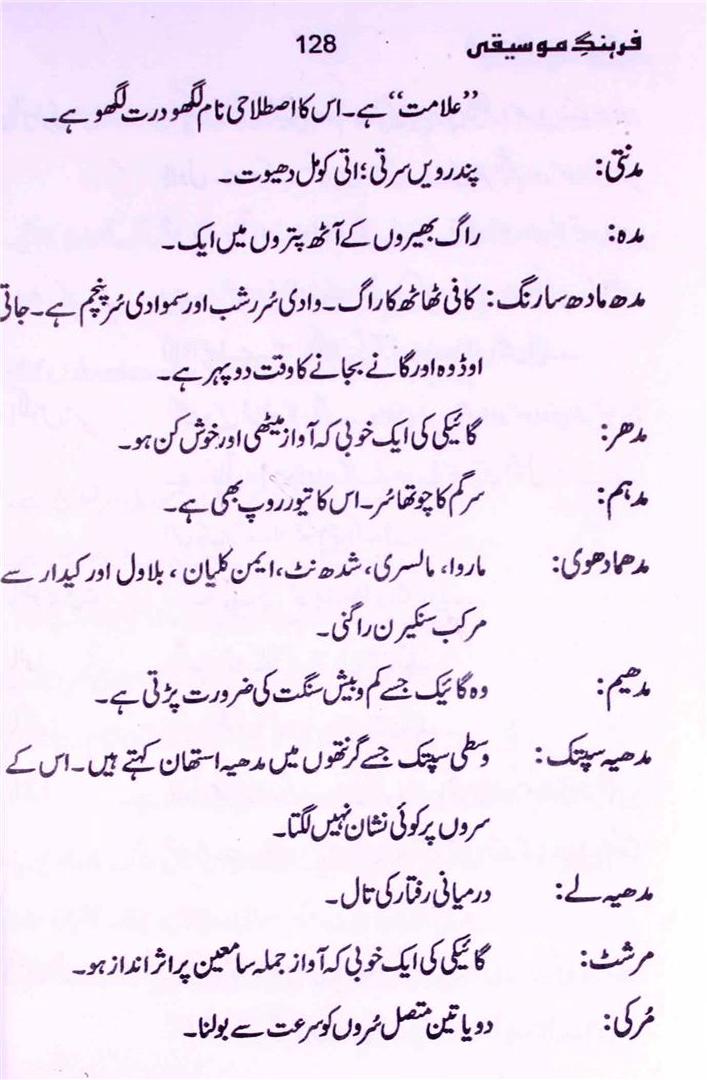 فرہنگِ موسیقی 128
”علامت“ ہے۔ اس کا اصطلاحی نام لگھو درت لگھو ہے۔
مدنتی: پندرویں سرتی؛ اتی کومل دھیوت۔
مدہ: راگ بھیروں کے آٹھ پتروں میں ایک۔
مدھ مادھ سارنگ: کافی ٹھاٹھ کا راگ۔ وادی سُر رشب اور سموادی سُر پنچم ہے۔ جاتی
اوڈوہ اور گانے بجانے کا وقت دوپہر ہے۔
مدھر: گائیکی کی ایک خوبی کہ آواز میٹھی اور خوش کن ہو۔
مدہم: سرگم کا چوتھا سُر۔ اس کا تیور روپ بھی ہے۔
مدھمادھوی: ماروا، مالسری، شدھ نٹ، ایمن کلیان، بلاول اور کیدار سے
مرکب سنکیرن راگنی۔
مدھیم: وہ گائیک جسے کم و بیش سنگت کی ضرورت پڑتی ہے۔
مدھیہ سپتک: وسطی سپتک جسے گرنتھوں میں مدھیہ استھان کہتے ہیں۔ اس کے
سروں پر کوئی نشان نہیں لگتا۔
مدھیہ لے: درمیانی رفتار کی تال۔
مرشٹ: گائیکی کی ایک خوبی کہ آواز جملہ سامعین پر اثر انداز ہو۔
مُرکی: دو یا تین متصل سُروں کو سرعت سے بولنا۔